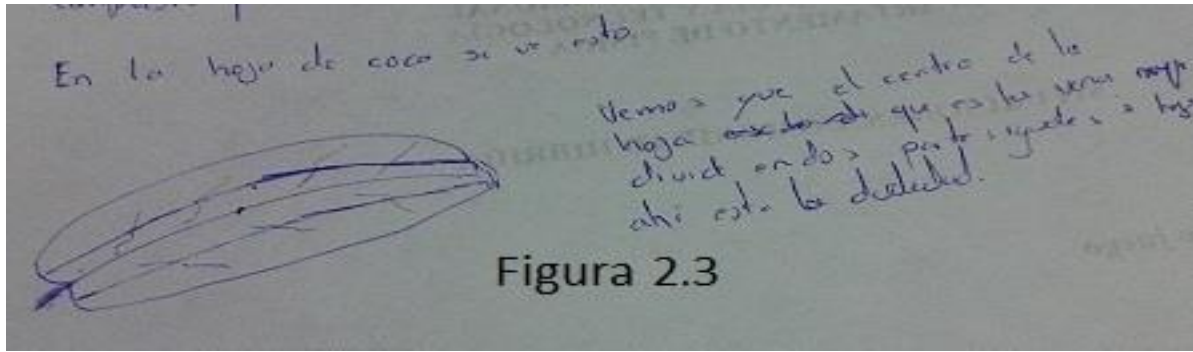 En la hoja de coca se ve esto
Vemos que el centro de la
hoja que es la vena
divide en dos partes iguales a hoja
ahí esta la dualidad.
Figura 2.3